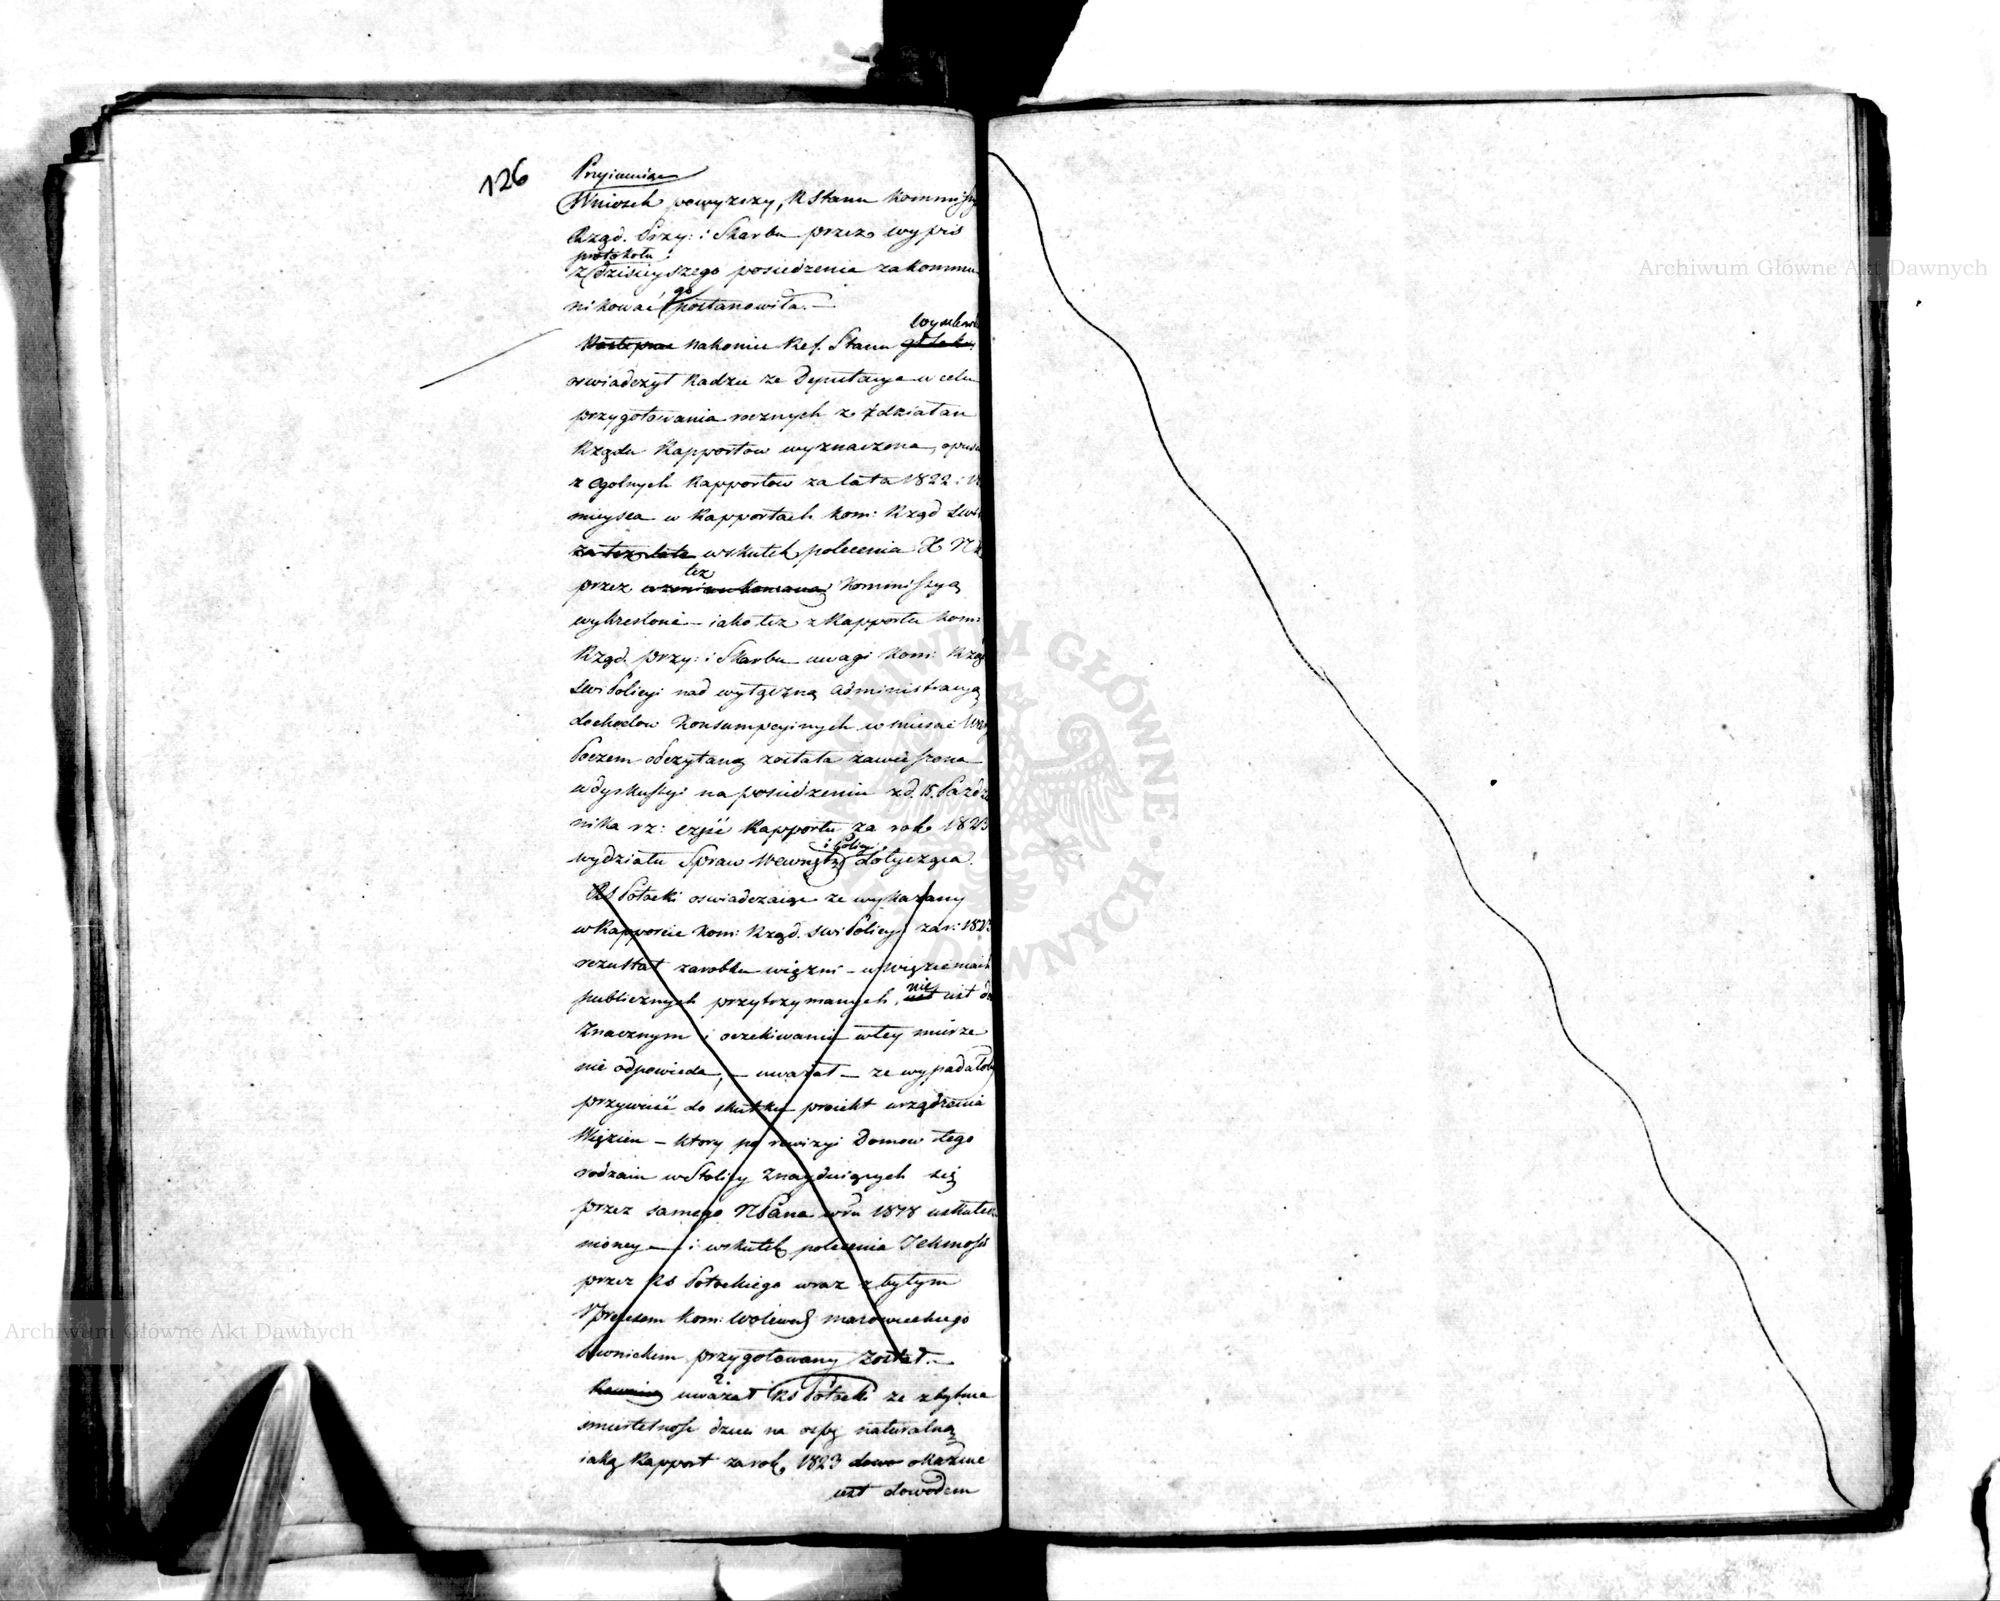 126
Przyimuiąc
Wniosek powyższy, R Stanu Kommissyi
Rząd. Przy: i Skarbu przez wypis
protokołu
z dzisieyszego posiedzenia zakommu
nikować go postanowiła. —
nakoniec Ref. Stanu
oswiadczył Radzie ze Deputacya w celu
przygotowania rocznych z działan
Rządu Rapportow wyznaczona,
z ogolnych Rapportow za lata 1822 i
mieysca w Rapportach Kom: Rząd
za też lata wskutek polecenia X N
przez też Kommissyą
wykreslone — iako tez z Rapportu Kom:
Rząd. przy: i Skarbu uwagi Kom: Rząd
Swi Policyi nad wyłączną administracyą
dochodow Konsumpcyinych w miescie
Poczem odczytaną została zawieszona
w dyskussyi na posiedzeniu z d. 15. Paździer
nika rz: część Rapportu za rok 1823
wydziału Spraw Wewnętz i Policyi dotycząca.
RS Potocki oswiadczaiąc ze wykazany
w Rapporcie Kom: Rząd. Swi Policyi za r: 1823
rezultat zarobku więzni — w więzieniach
publicznych przytrzymanych, nie iest
znacznym i oczekiwaniu w tey mierze
nie odpowiada, — uważał — ze wypadałoby
przywieść do skutku proiekt urządzenia
Więzien — ktory po rewizyi Domow tego
rodzaiu w Stolicy znayduiących się
przez samego NPana w ru 1818 uskutecz
nioney — i wskutek polecenia JCKmości
przez RS Potockiego wraz z byłym
Prezesem Kom: Woiewod mazowieckiego
przygotowany został. —
uważał RS Potocki ze zbytnia
smiertelność dzieci na ospę naturalną
iaką Rapport za rok 1823 dowo okazuie
iest dowodem
Archiwum Główne Akt Dawnych
Archiwum Główne Akt Dawnych
ARCHIWUM GŁÓWNE AKT DAWNYCH